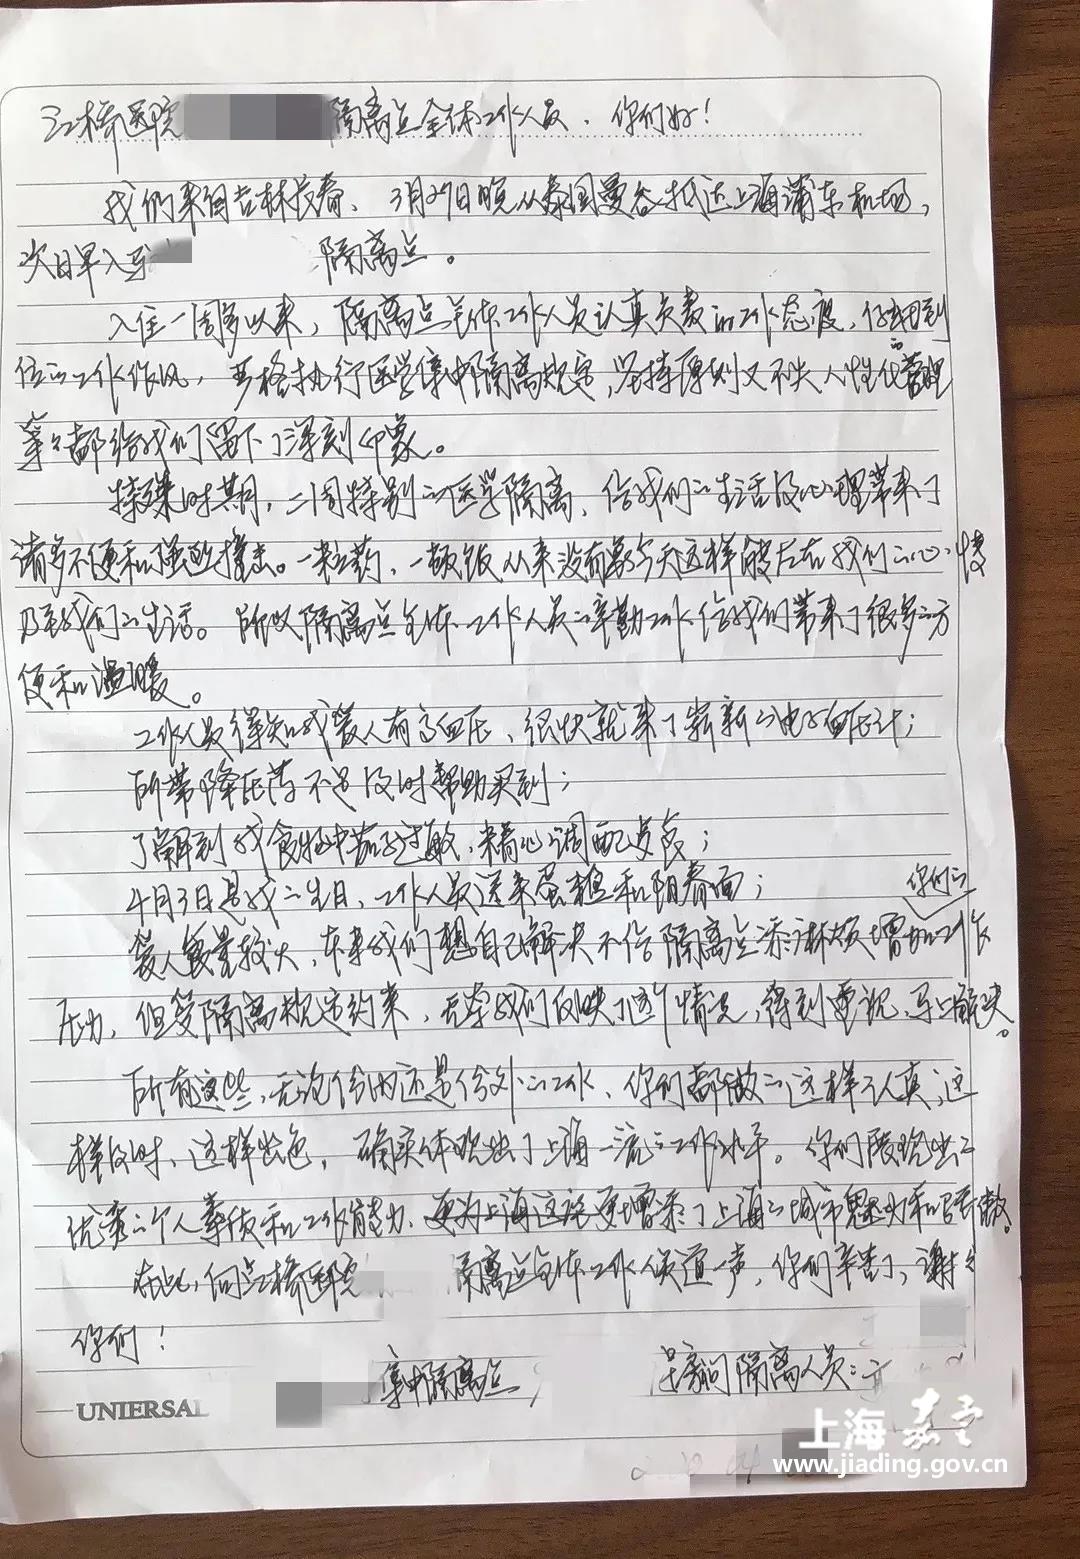 江桥医院 隔离点全体工作人员、你们好!
我们来自吉林长春、3月27日晚从泰国曼谷抵达上海浦东机场,
次日早入 隔离点。
入住一周多以来,隔离点全体工作人员认真负责的工作态度,仔细到
位的工作作风,严格执行医学集中隔离规定,坚持原则又不失人性化的管理
等等都给我们留下了深刻印象。
特殊时期,二周特别的医学隔离,给我们的生活及心理带来了
诸多不便和强烈撞击。一粒药、一顿饭从来没有象今天这样能左右我们的心情
乃至我们的生活。所以隔离点全体工作人员的辛勤工作给我们带来了很多的方
便和温暖。
工作人员得知我爱人有高血压、很快就来了崭新的电子血压计;
所带降压药不足及时帮助买到;
了解到我食物中茄子过敏、精心调配
4月3日是我的生日、工作人员送来蛋糕和阳春面;
爱人 较大,本来我们想自己解决不给隔离点添麻烦增加你们的工作
压力,但受隔离规 约束,无奈我们反映了这个情况,得到重视、马上解决。
所有这些,无论份内还是份外的工作、你们都做的这样的认真,这
样及时、这样出色,确实体现出了上海一流的工作水平。你们展现出的
优秀的个人素质和工作能力、更为上海 更增添了上海的城市魅力和
在此,向江桥医院 隔离点全体工作人员道一声,你们辛苦了、谢谢
你们!
集中隔离点 房间隔离人员:
UNIERSAL
上海嘉定
www.jiading.gov.cn